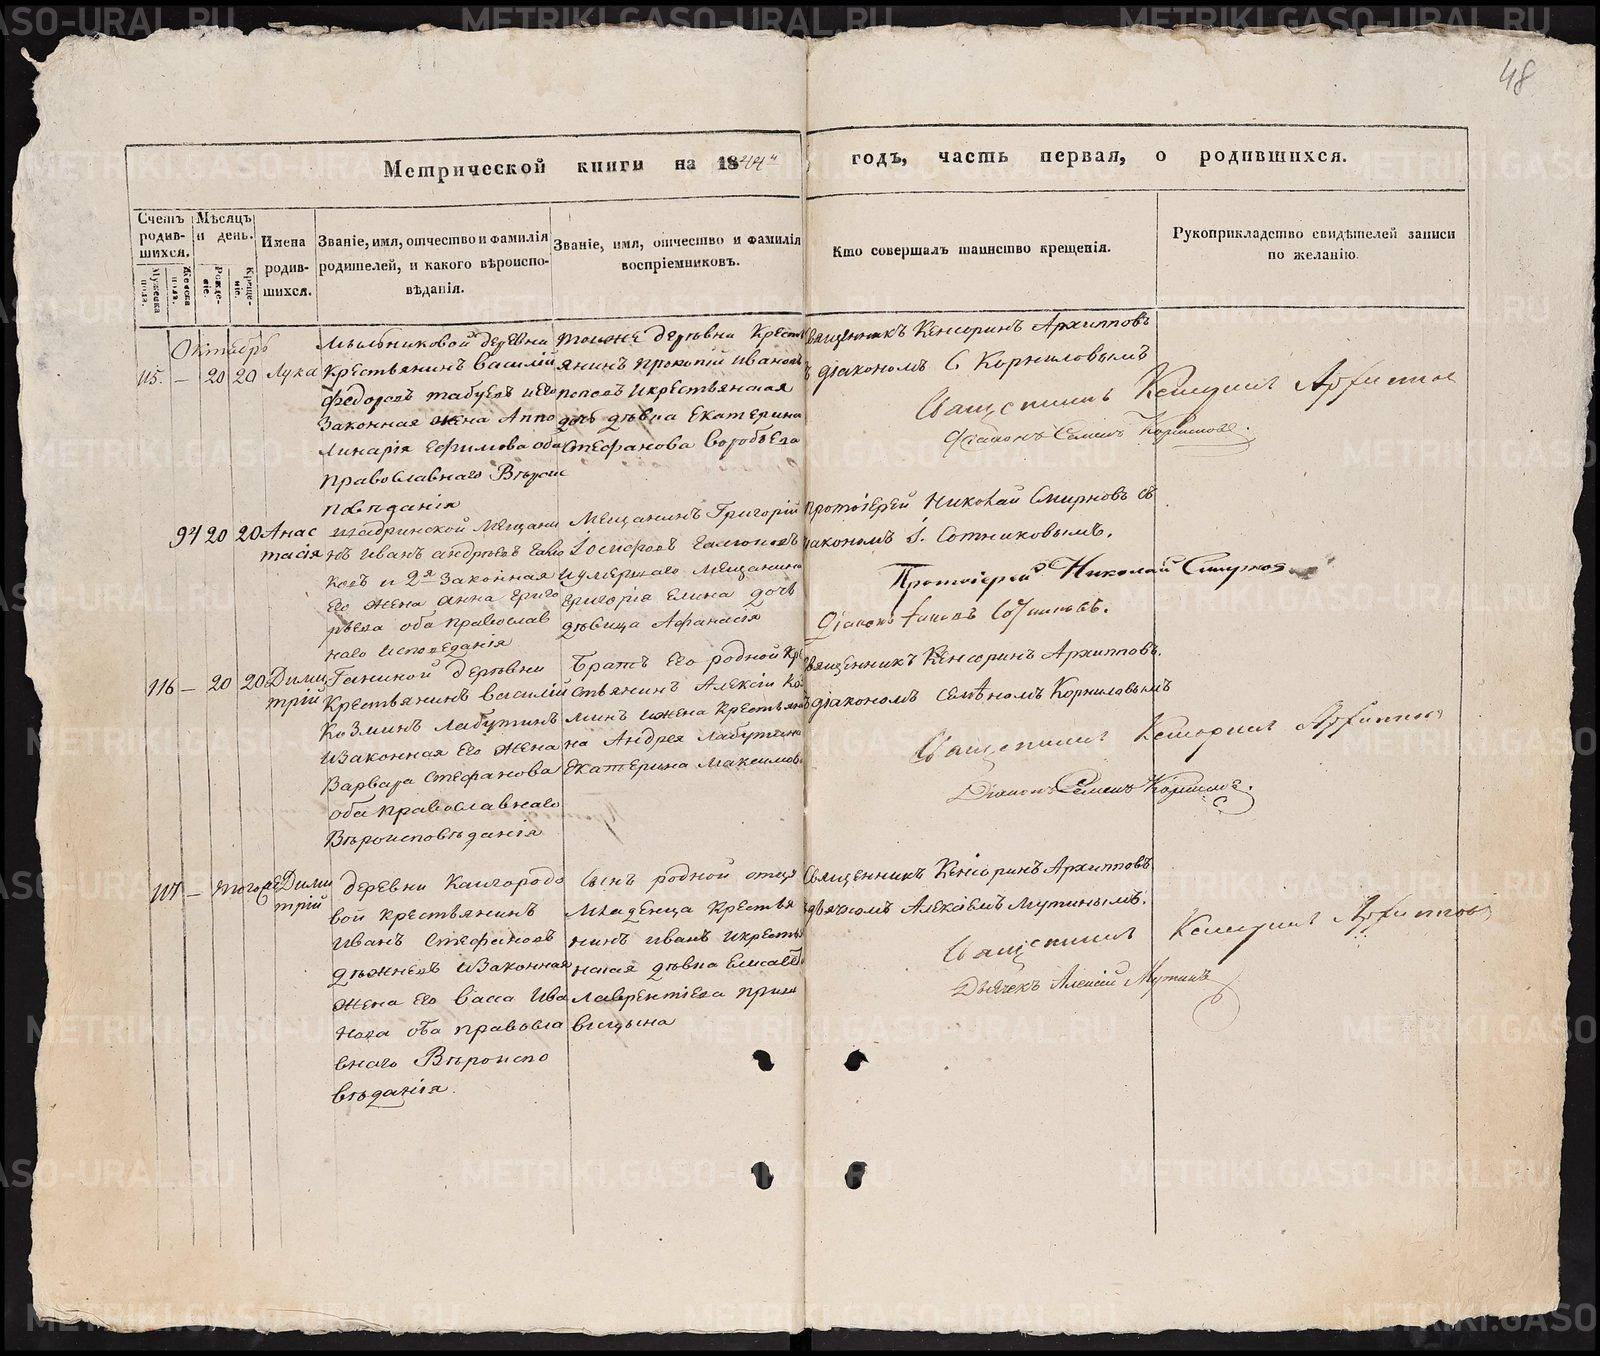 48
Метрической книги на 1844й годъ, часть первая, о родившихся.
Счетъ родив-шихся.
Мужеска пола.
Женска пола.
Мѣсяцъ и день.
Рожде-ніе.
Креще-ніе.
Имена родив-шихся.
Званіе, имя, отчество и фамилія
родителей, и какого вѣроиспо-
вѣданія.
Званіе, имя, отчество и фамилія
воспріемниковъ.
Кто совершалъ таинство крещенія.
Рукоприкладство свидѣтелей записи
по желанію.
Октябрь
115. — 20 20 Лука
Мыльниковой деревни
крестьянинъ Василій
Федоровъ табуевъ и его
Законная жена Аппо
линарія Ефимова оба
православнаго Вѣроис
повѣданія
тоиже деревни Кресть
янинъ прокопій Ивановъ
поповъ и крестьянская
дочь дѣвка Екатерина
Стефанова Воробьева
Священникъ Кенсоринъ Архипповъ
діакономъ С Корниловымъ
Священникъ Кенсоринъ Архипповъ
Діаконъ Семенъ Корниловъ.
94 20 20 Анас
тасія
шадринской Мещани
нъ Иванъ андреевъ
ковъ и 2я Законная
Его жена анна григо
рьева оба православ
наго исповеданія
Мещанинъ Григорій
Іосифовъ
и умершаго Мещанина
Григорія Елина дочь
дѣвица Афанасія
протоіерей Николай Смирновъ съ
діакономъ І. Сотниковымъ.
Протоіерей Николай Смирновъ
Діаконъ Іаковъ Сотниковъ.
116 — 20 20 Дими
трій
Ганиной деревни
Крестьянинъ Василій
Козминъ Лабутинъ
и Законная Его жена
Варвара Стефанова
оба православнаго
Вѣроисповѣданія
Братъ Его родной кре
стьянинъ Алексій Коз
минъ и жена Крестьяни
на Андрея Лабутина
Екатерина Максимова
Священникъ Кенсоринъ Архипповъ.
діакономъ Семѣномъ Корниловымъ
Священникъ Кенсоринъ Архипповъ
Діаконъ Семенъ Корниловъ.
117 — тогоже Дими
трій
деревни Кайгородо
вой крестьянинъ
Иванъ Стефановъ
дѣжневъ и Законная
жена Его Васса Ива
нова оба правосла
внаго Вѣроиспо
вѣданія.
Сынъ родной отца
Младенца Крестья
нинъ Иванъ и кресть
нская дѣвка Елисаве
Лаврентіева
Священникъ Кенсоринъ Архипповъ
дьячкомъ Алексіемъ Мутинымъ.
Священникъ Кенсоринъ Архипповъ
Дьячекъ Алексій Мутинъ
METRIKI.GASO-URAL.RU